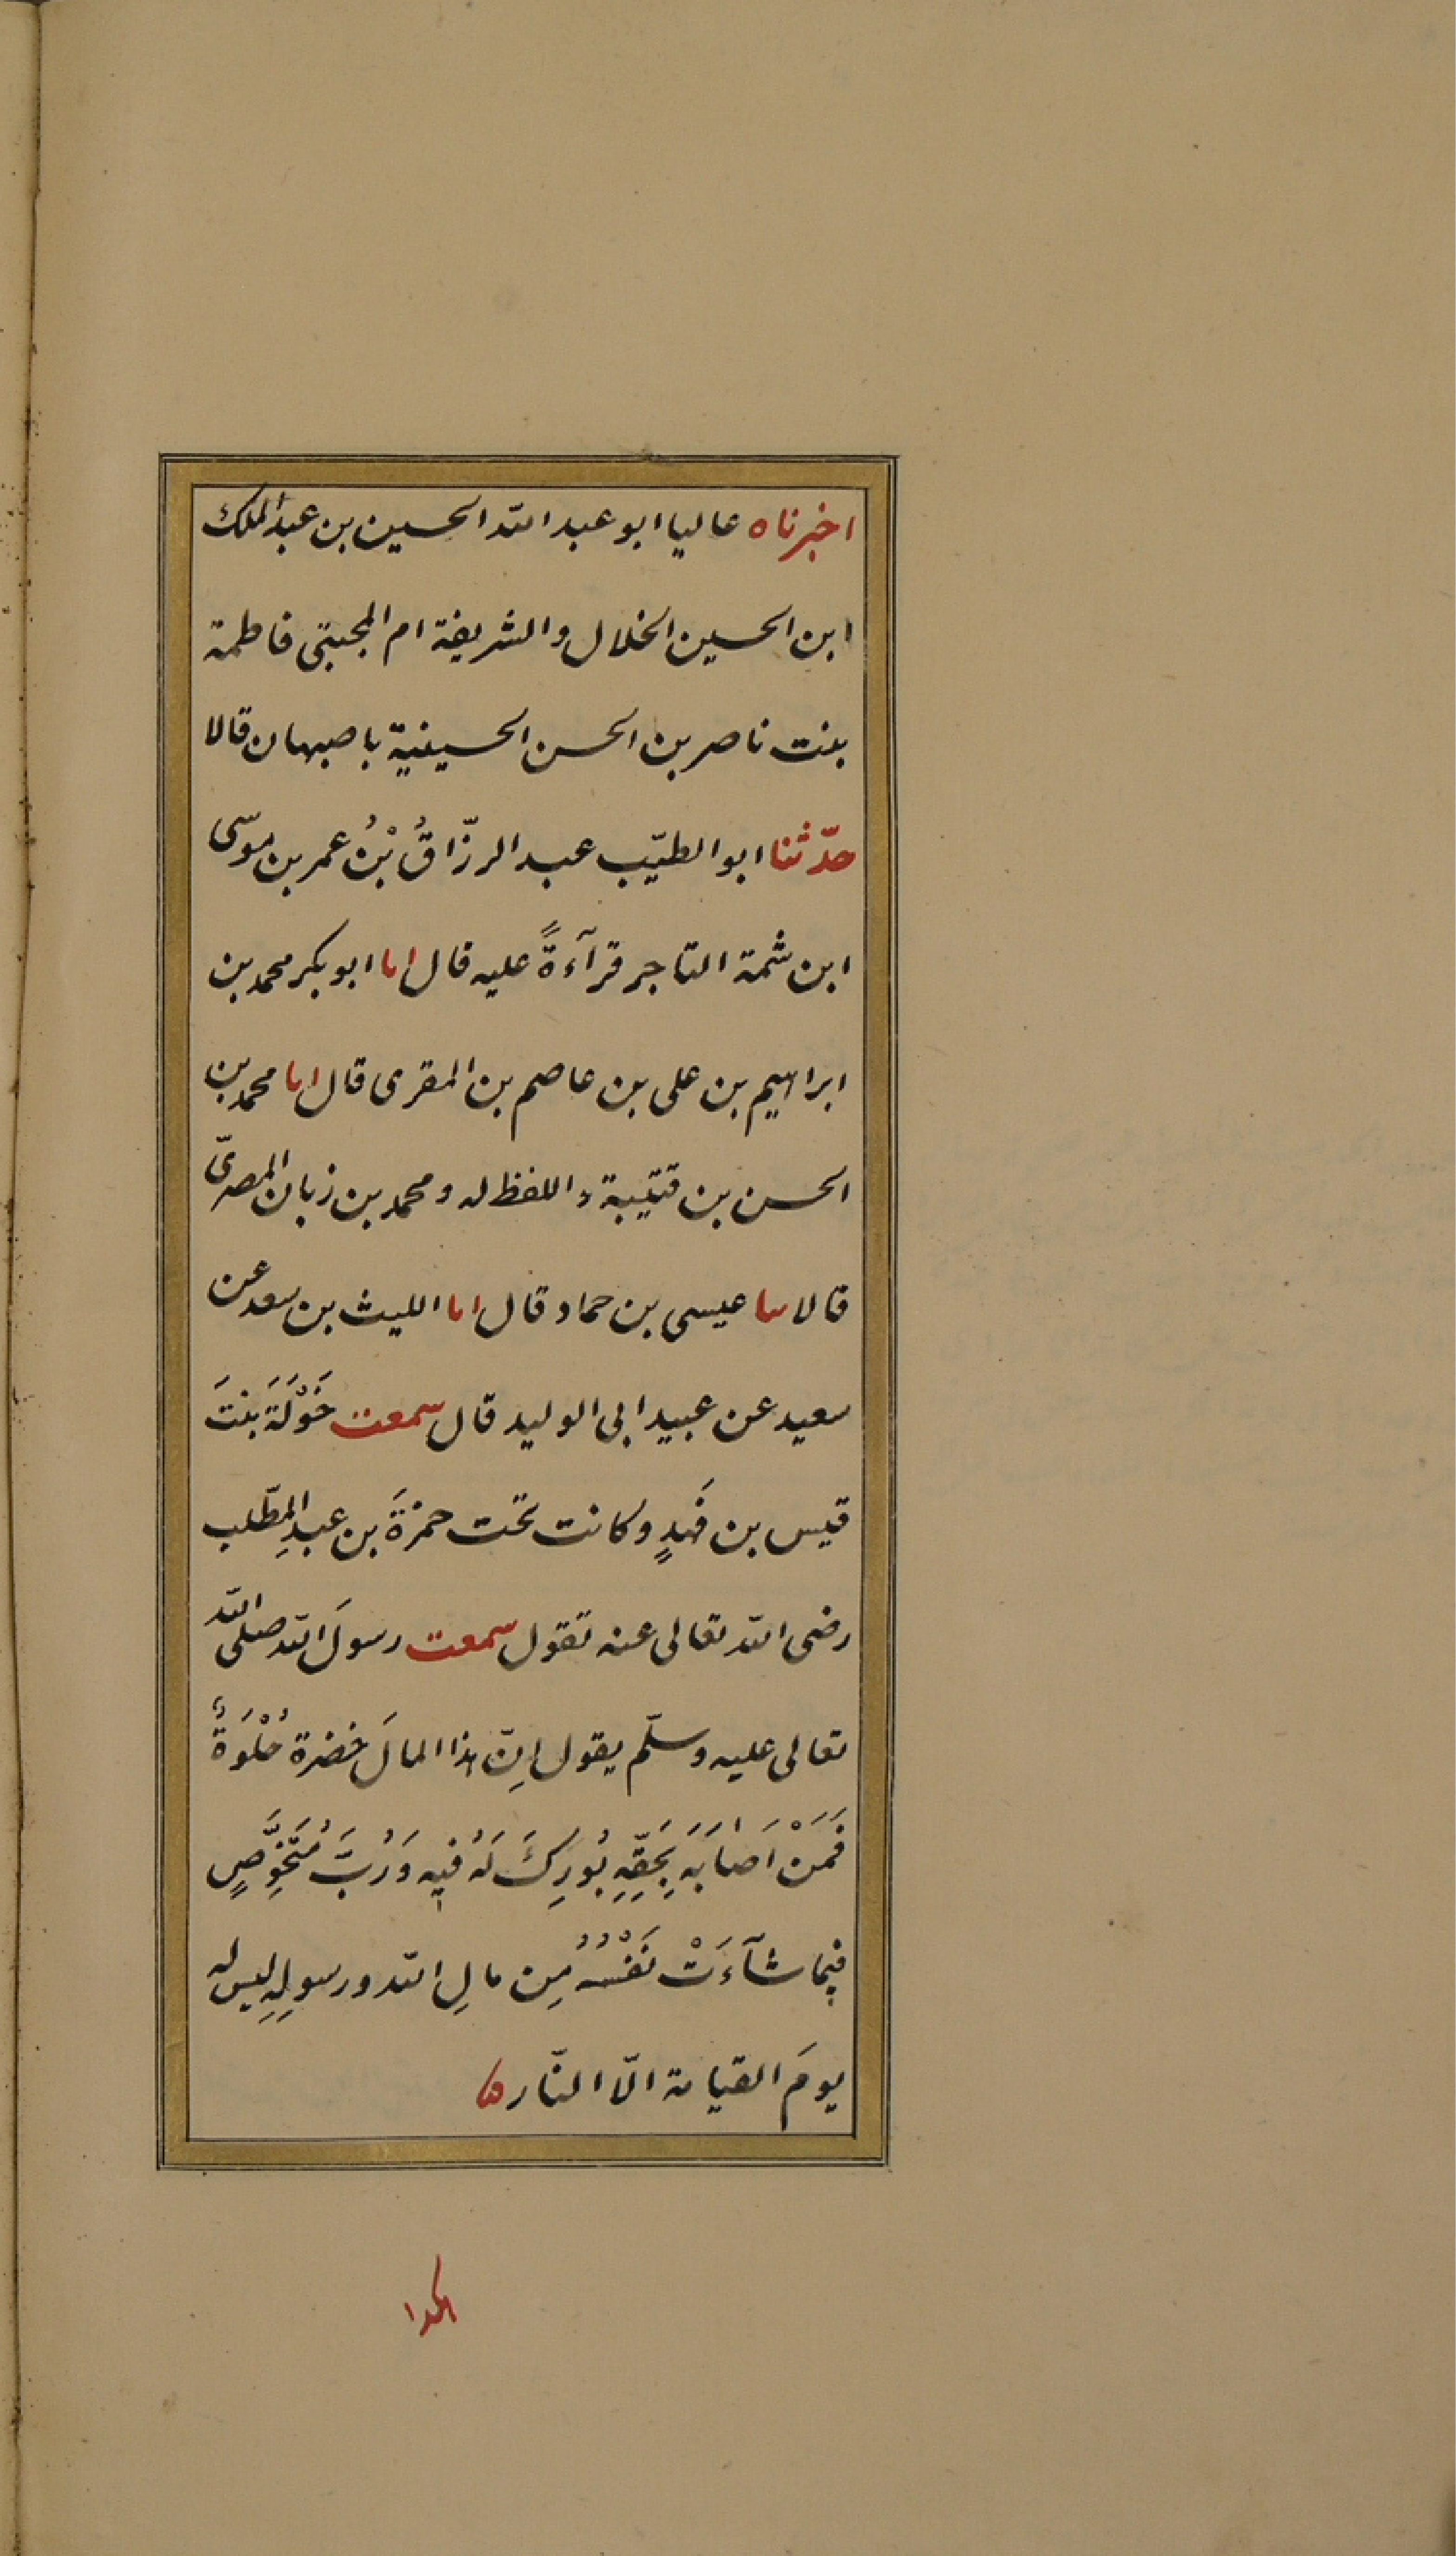 اخبرناه عاليا ابو عبد الله الحسين بن عبد الملك
ابن الحسين الخلال والشريفة ام المجتبى فاطمة
بنت ناصر بن الحسن الحسينية باصبهان قالا
حدّثنا ابو الطيّب عبد الرزّاقُ بْنُ عمر بن موسى
ابن شمة التاجر قرآءةً عليه قال انا ابو بكر محمد بن
ابراهيم بن على بن عاصم بن المقرى قال انا محمد بن
الحسن بن قتيبة واللفظ له ومحمد بن زبان المصرىّ
قالا سا عيسى بن حماد قال انا الليث بن سعد عن
سعيد عن عبيد ابى الوليد قال سمعت خَوْلَةَ بنتَ
قيس بن فَهدٍ وكانت تحت حمزةَ بن عبدِ المطّلب
رضى الله تعالى عنه تقول سمعت رسولَ الله صلى الله
تعالى عليه وسلّم يقول اِنّ هذا المالَ خضرة حُلْوَةٌ
فَمَنْ اَصَابَهَ بِحَقِّهِ بُورِكَ لَهُ فيه وَرُبَّ مُتَخَوِّصٍ
فيما شآءَتْ نَفْسُهُ مِن مالِ الله ورسولِهِ ليس له
يومَ القيامة الّا النّار